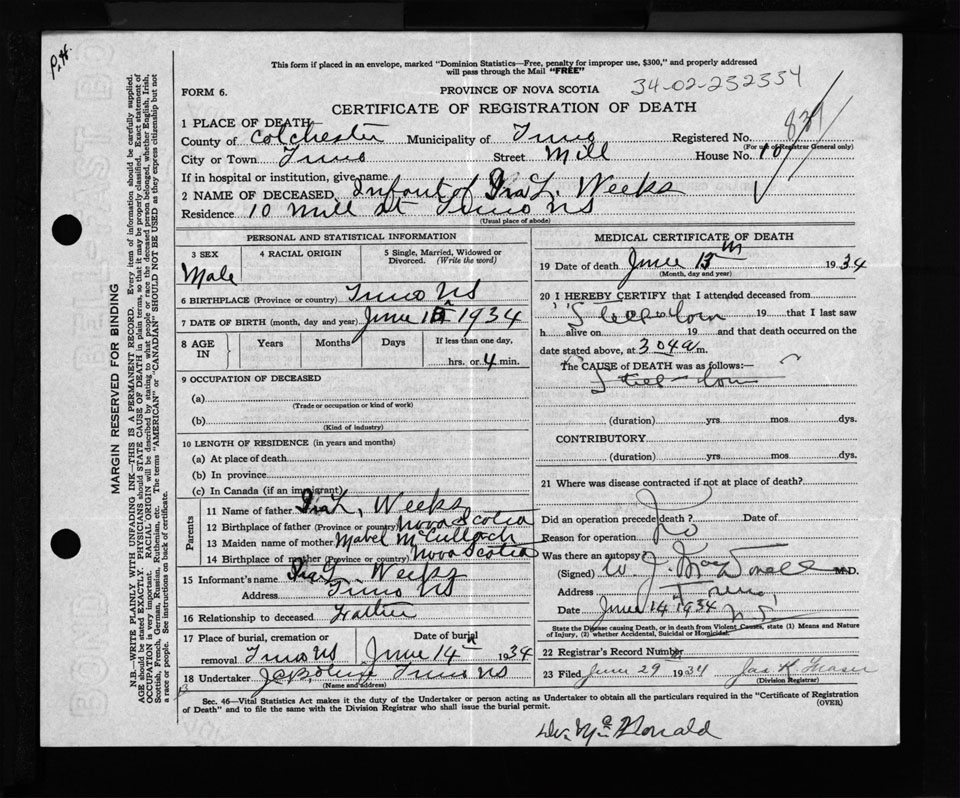 P.H.
This form if placed in an envelope, marked "Dominion Statistics—Free, penalty for improper use, $300," and properly addressed
will pass through the Mail "FREE"
FORM 6.
PROVINCE OF NOVA SCOTIA
34-02-232334
CERTIFICATE OF REGISTRATION OF DEATH
1 PLACE OF DEATH
County of Colchester Municipality of Truro Registered No.
(For use of Registrar General only)
City or Town Truro Street Mill House No. 10
If in hospital or institution, give name
2 NAME OF DECEASED Infant of Ira L. Weeks
Residence 10 Mill St Truro NS
(Usual place of abode)
PERSONAL AND STATISTICAL INFORMATION
3 SEX 4 RACIAL ORIGIN 5 Single, Married, Widowed or Divorced. (Write the word)
Male
6 BIRTHPLACE (Province or country) Truro NS
7 DATE OF BIRTH (month, day and year) June 1934
8 AGE IN Years Months Days If less than one day,
hrs. or 4 min.
9 OCCUPATION OF DECEASED
(a)
(Trade or occupation or kind of work)
(b)
(Kind of industry)
10 LENGTH OF RESIDENCE (in years and months)
(a) At place of death
(b) In province
(c) In Canada (if an immigrant)
Parents
11 Name of father Ira L. Weeks
12 Birthplace of father (Province or country) Nova Scotia
13 Maiden name of mother Mabel McCulloch
14 Birthplace of mother (Province or country) Nova Scotia
15 Informant's name Ira L. Weeks
Address Truro NS
16 Relationship to deceased Father
17 Place of burial, cremation or removal Truro NS Date of burial June 14th 1934
18 Undertaker Truro NS
(Name and address)
MEDICAL CERTIFICATE OF DEATH
19 Date of death June 13th 1934
(Month, day and year)
20 I HEREBY CERTIFY that I attended deceased from
Still born 19 that I last saw
h alive on 19 and that death occurred on
the date stated above, at 3.04 a m.
The CAUSE of DEATH was as follows:
Still-born
(duration) yrs mos dys.
CONTRIBUTORY
(duration) yrs mos dys.
21 Where was disease contracted if not at place of death?
Did an operation precede death? No Date of
Reason for operation
Was there an autopsy
(Signed) W. J. MacDonald M.D.
Address Truro,
Date June 14th 1934 N.S.
State the Disease causing Death, or in death from Violent Causes, state (1) Means and Nature
of Injury, (2) whether Accidental, Suicidal or Homicidal.
22 Registrar's Record Number
23 Filed June 29 1934 Jas K. Fraser
(Division Registrar)
Sec. 46—Vital Statistics Act makes it the duty of the Undertaker or person acting as Undertaker to obtain all the particulars required in the "Certificate of Registration
of Death" and to file the same with the Division Registrar who shall issue the burial permit.
(OVER)
Dr. McDonald
MARGIN RESERVED FOR BINDING
N.B.—WRITE PLAINLY WITH UNFADING INK—THIS IS A PERMANENT RECORD. Every item of information should be carefully supplied.
AGE should be stated EXACTLY. PHYSICIANS should STATE CAUSE OF DEATH in plain terms, so that it may be properly classified. Exact statement of
OCCUPATION is very important. RACIAL ORIGIN will be described by stating to what people or race the deceased person belonged, whether English, Irish,
Scottish, French, German, Russian, Ruthenian, etc. The terms "AMERICAN" or "CANADIAN" SHOULD NOT BE USED as they express citizenship but not
a race or people. See instructions on back of certificate.